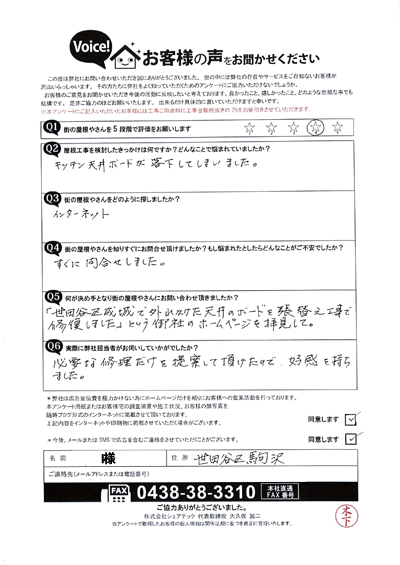 Voice!
お客様の声をお聞かせください
この度は弊社にお問い合わせいただき誠にありがとうございました。世の中には弊社の存在やサービスをご存知ないお客様が
沢山いらっしゃいます。その方たちに弊社をよく知っていただくためのアンケートにご協力いただけないでしょうか。
お客様のご意見をお聞かせいただき今後の活動に反映したいと考えております。良かったこと、嬉しかったこと、どのような些細な事でも
結構です。是非ご協力のほどお願いいたします。出来るだけ具体的に書いていただけますと幸いです。
※本アンケートにご記入いただいたお客様には工事ご用命時に工事金額税抜きの2%をお値引きさせていただきます。
Q1 街の屋根やさんを5段階で評価をお願いします
Q2 屋根工事を検討したきっかけは何ですか？どんなことで悩まれていましたか？
キッチン天井ボードが落下してしまいました。
Q3 街の屋根やさんをどのように探しましたか？
インターネット
Q4 街の屋根やさんを知りすぐにお問合せ頂けましたか？もし悩まれたとしたらどんなことがご不安でしたか？
すぐに問合せしました。
Q5 何が決め手となり街の屋根やさんにお問い合わせ頂きましたか？
「世田谷区成城で外れかけた天井のボードを張替え工事で
修復しました」という御社のホームページを拝見して。
Q6 実際に弊社担当者がお伺いしていかがでしたか？
必要な修理だけを提案して頂けたので、好感を持ち
ました。
＊弊社は広告宣伝費を極力かけない為にホームページだけを頼りにお客様への集客活動を行っております。
本アンケート用紙またはお客様宅の調査風景や施工状況、お客様の顔写真を
随時ブログ形式のインターネットに掲載させて頂いております。
上記内容をインターネットや印刷物に掲載させていただく場合がございます。
同意します
＊今後、メールまたは SMS で広告を含むご連絡をさせていただくことがございます。
同意します
名前 様 住所 世田谷区駒沢
ご連絡先（メールアドレスまたは電話番号）
FAX 0438-38-3310 本社直通 FAX番号
ご協力ありがとうございました。
株式会社シェアテック 代表取締役 大久保 誠二
当アンケートで取得したお客様の個人情報は関係法規に基づき厳正に管理いたします。
木下